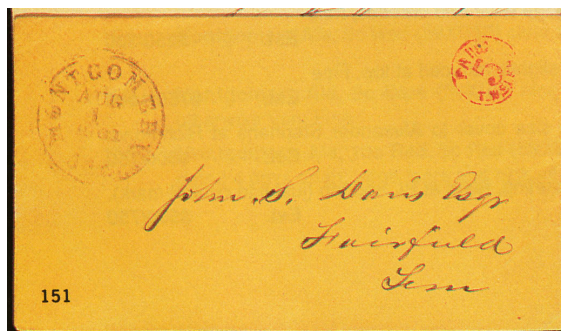 MONTGOMERY
AUG
1
1861
ALA.
PAID
5
T. WELSH
John S. Davis Esqr
Fairfield
Tenn
151